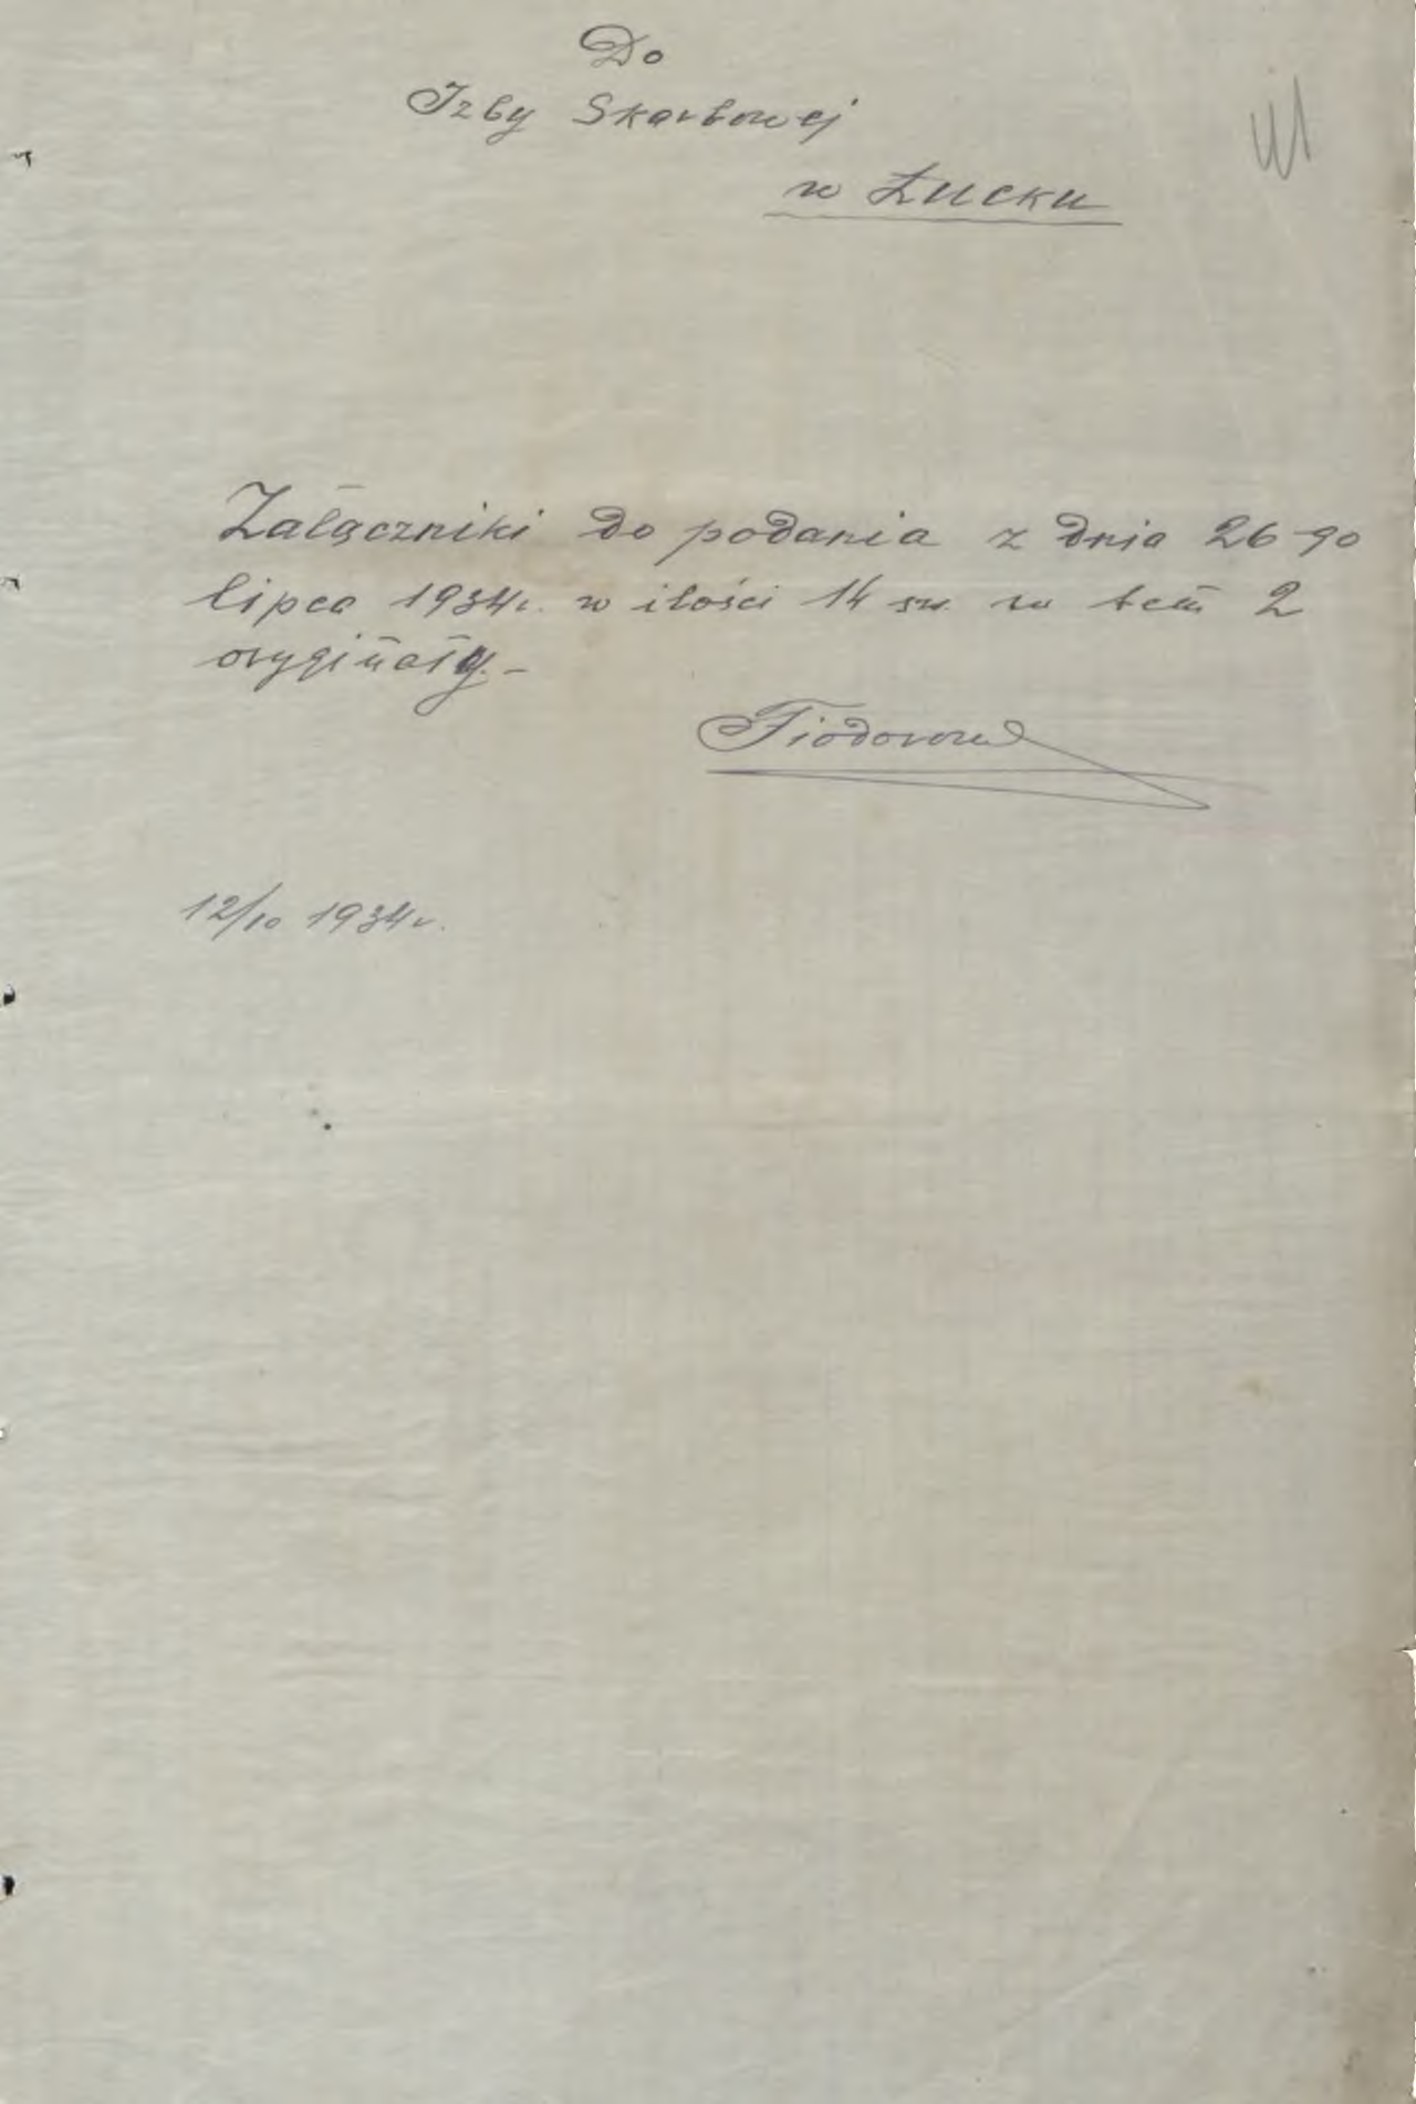 Do
Izby Skarbowej
w Łucku
Załączniki do podania z dnia 26-go
lipca 1934r. w ilości 14 szt. w tem 2
oryginały.-
Fiodorow
12/10 1934r.